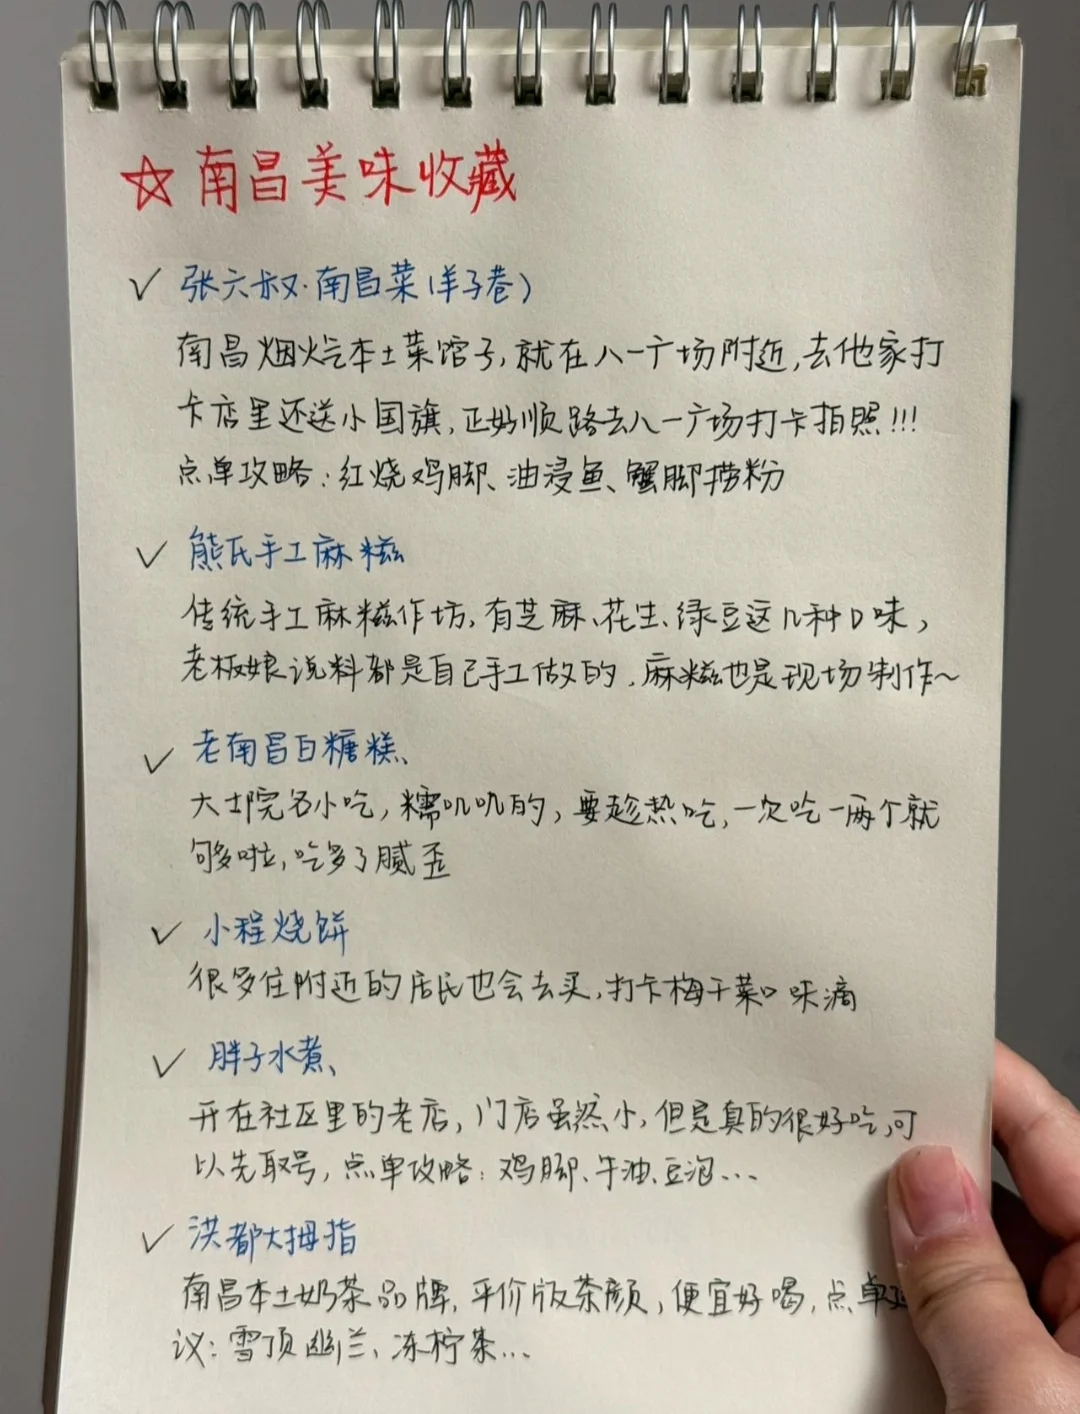 ☆ 南昌美味收藏
✓ 张六叔·南昌菜(羊子巷)
南昌烟火气本土菜馆子,就在八一广场附近,去他家打
卡店里还送小国旗,正好顺路去八一广场打卡拍照!!!
点单攻略:红烧鸡脚、油浸鱼、蟹脚捞粉
✓ 熊氏手工麻糍
传统手工麻糍作坊,有芝麻、花生、绿豆这几种口味,
老板娘说料都是自己手工做的,麻糍也是现场制作~
✓ 老南昌白糖糕、
大士院名小吃,糯叽叽的,要趁热吃,一次吃一两个就
够啦,吃多了腻歪
✓ 小程烧饼
很多住附近的居民也会去买,打卡梅干菜口味滴
✓ 胖子水煮、
开在社区里的老店,门店虽然小,但是真的很好吃,可
以先取号,点单攻略:鸡脚、牛油、豆泡...
✓ 洪都大拇指
南昌本土奶茶品牌,平价版茶颜,便宜好喝,点单
议:雪顶幽兰、冻柠茶...